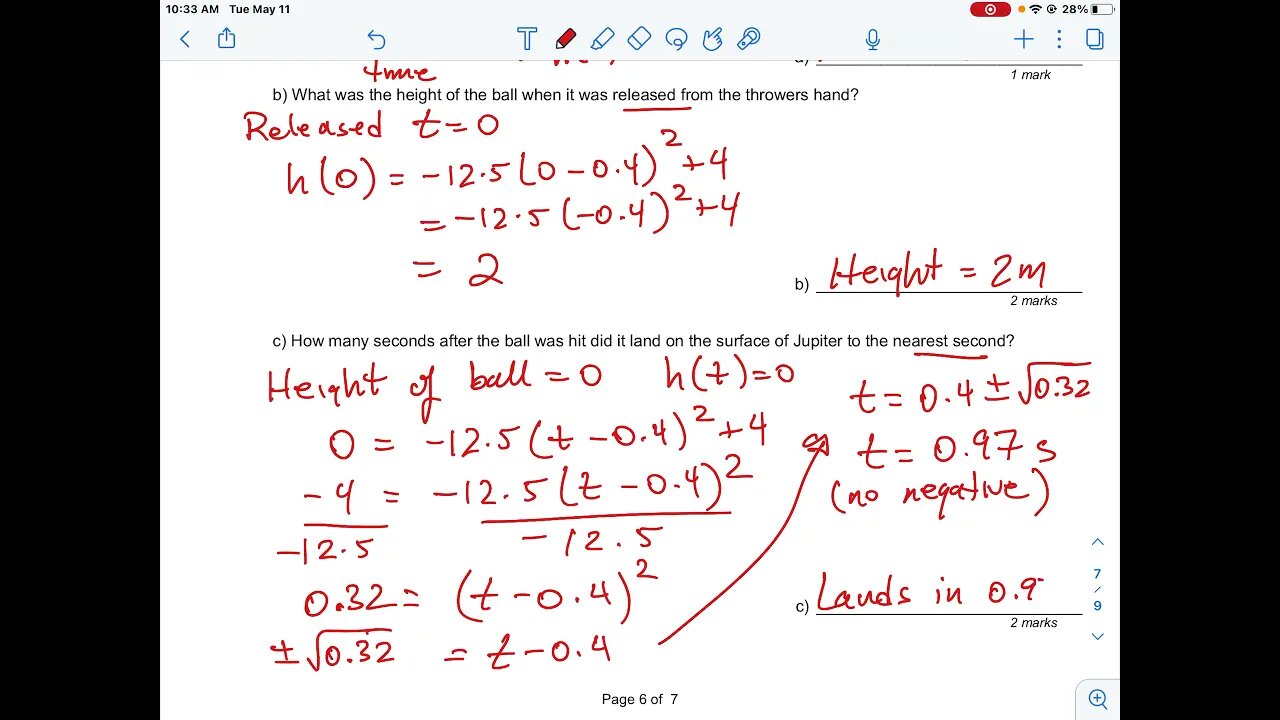 10:33 AM Tue May 11
28%
T
time
a)
1 mark
b) What was the height of the ball when it was released from the throwers hand?
Released t = 0
h(0) = -12.5(0 - 0.4)² + 4
= -12.5(-0.4)² + 4
= 2
b) Height = 2m
2 marks
c) How many seconds after the ball was hit did it land on the surface of Jupiter to the nearest second?
Height of ball = 0 h(t) = 0
0 = -12.5(t - 0.4)² + 4
-4 = -12.5(t - 0.4)²
-12.5 -12.5
0.32 = (t - 0.4)²
±√0.32 = t - 0.4
t = 0.4 ± √0.32
t = 0.97 s
(no negative)
c) Lands in 0.9
2 marks
7
/
9
Page 6 of 7